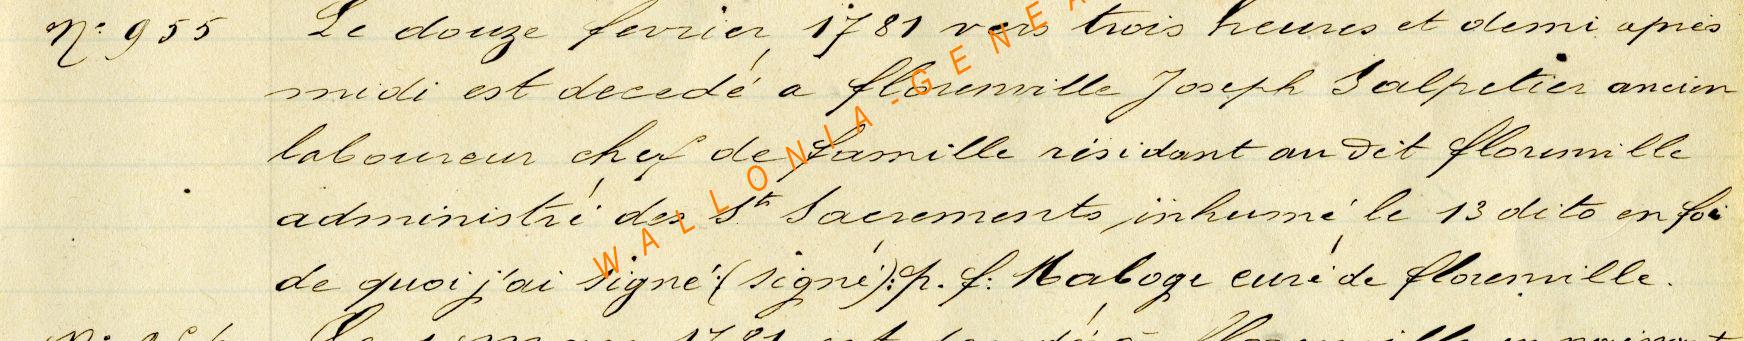 N° 955 Le douze fevrier 1781 vers trois heures et demi apres
midi est decedé a florenville Joseph Salpetier ancien
laboureur chef de famille résidant au dit florenville
administré des Sts Sacrements inhumé le 13 dito en foi
de quoi j'ai signé (signé): p. f. Maboge curé de florenville.
1781
WALLONIA-GENEA